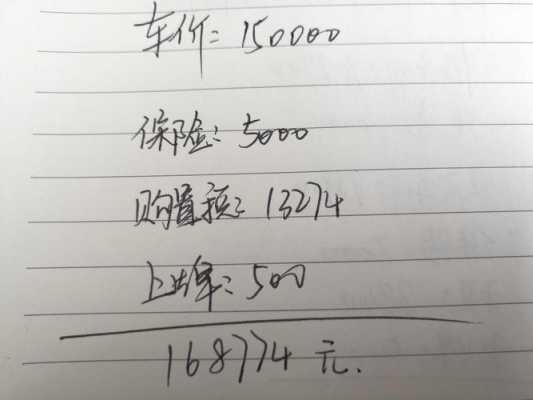 车价: 150000
保险: 5000
购置税: 13274
上牌: 500
168774 元.